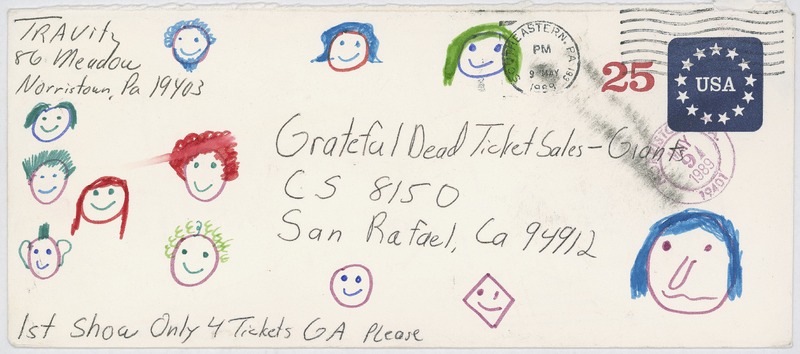 TRAVITZ
86 Meadow
Norristown, Pa 19403
EASTERN, PA 193
PM
9 MAY
1989
25
USA
MAY
9
1989
19401
Grateful Dead Ticket Sales - Giants
CS 8150
San Rafael, Ca 94912
1st Show Only 4 Tickets GA Please